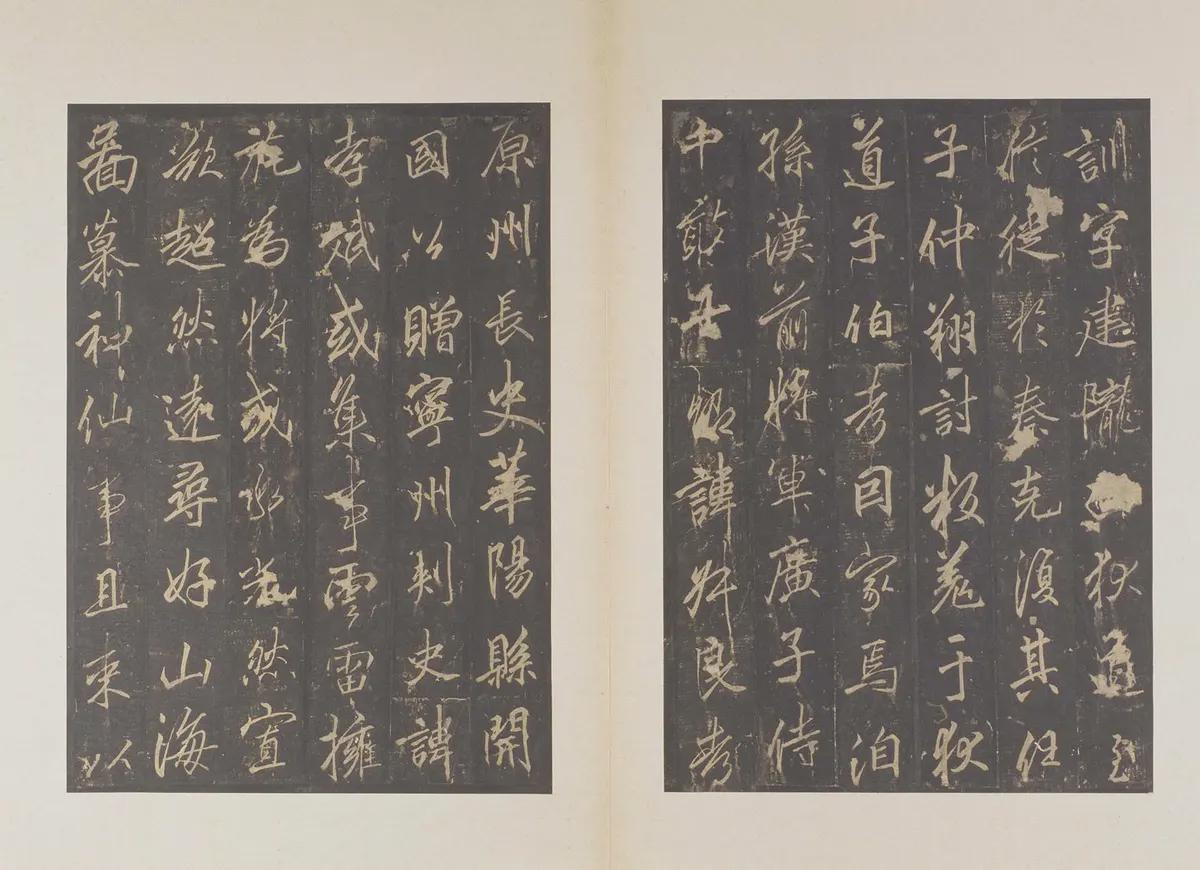 訓字建隴狄道至
從於秦克復其任
子仲翔討叛羌于狄
道子伯考因家焉洎
孫漢前將軍廣子侍
中敢諱叔良考
原州長史華陽縣開
國公贈寧州刺史諱
孝斌或集事雲雷擁
旄為將或然宣
欲超然遠尋好山海
啚慕神仙事且束以